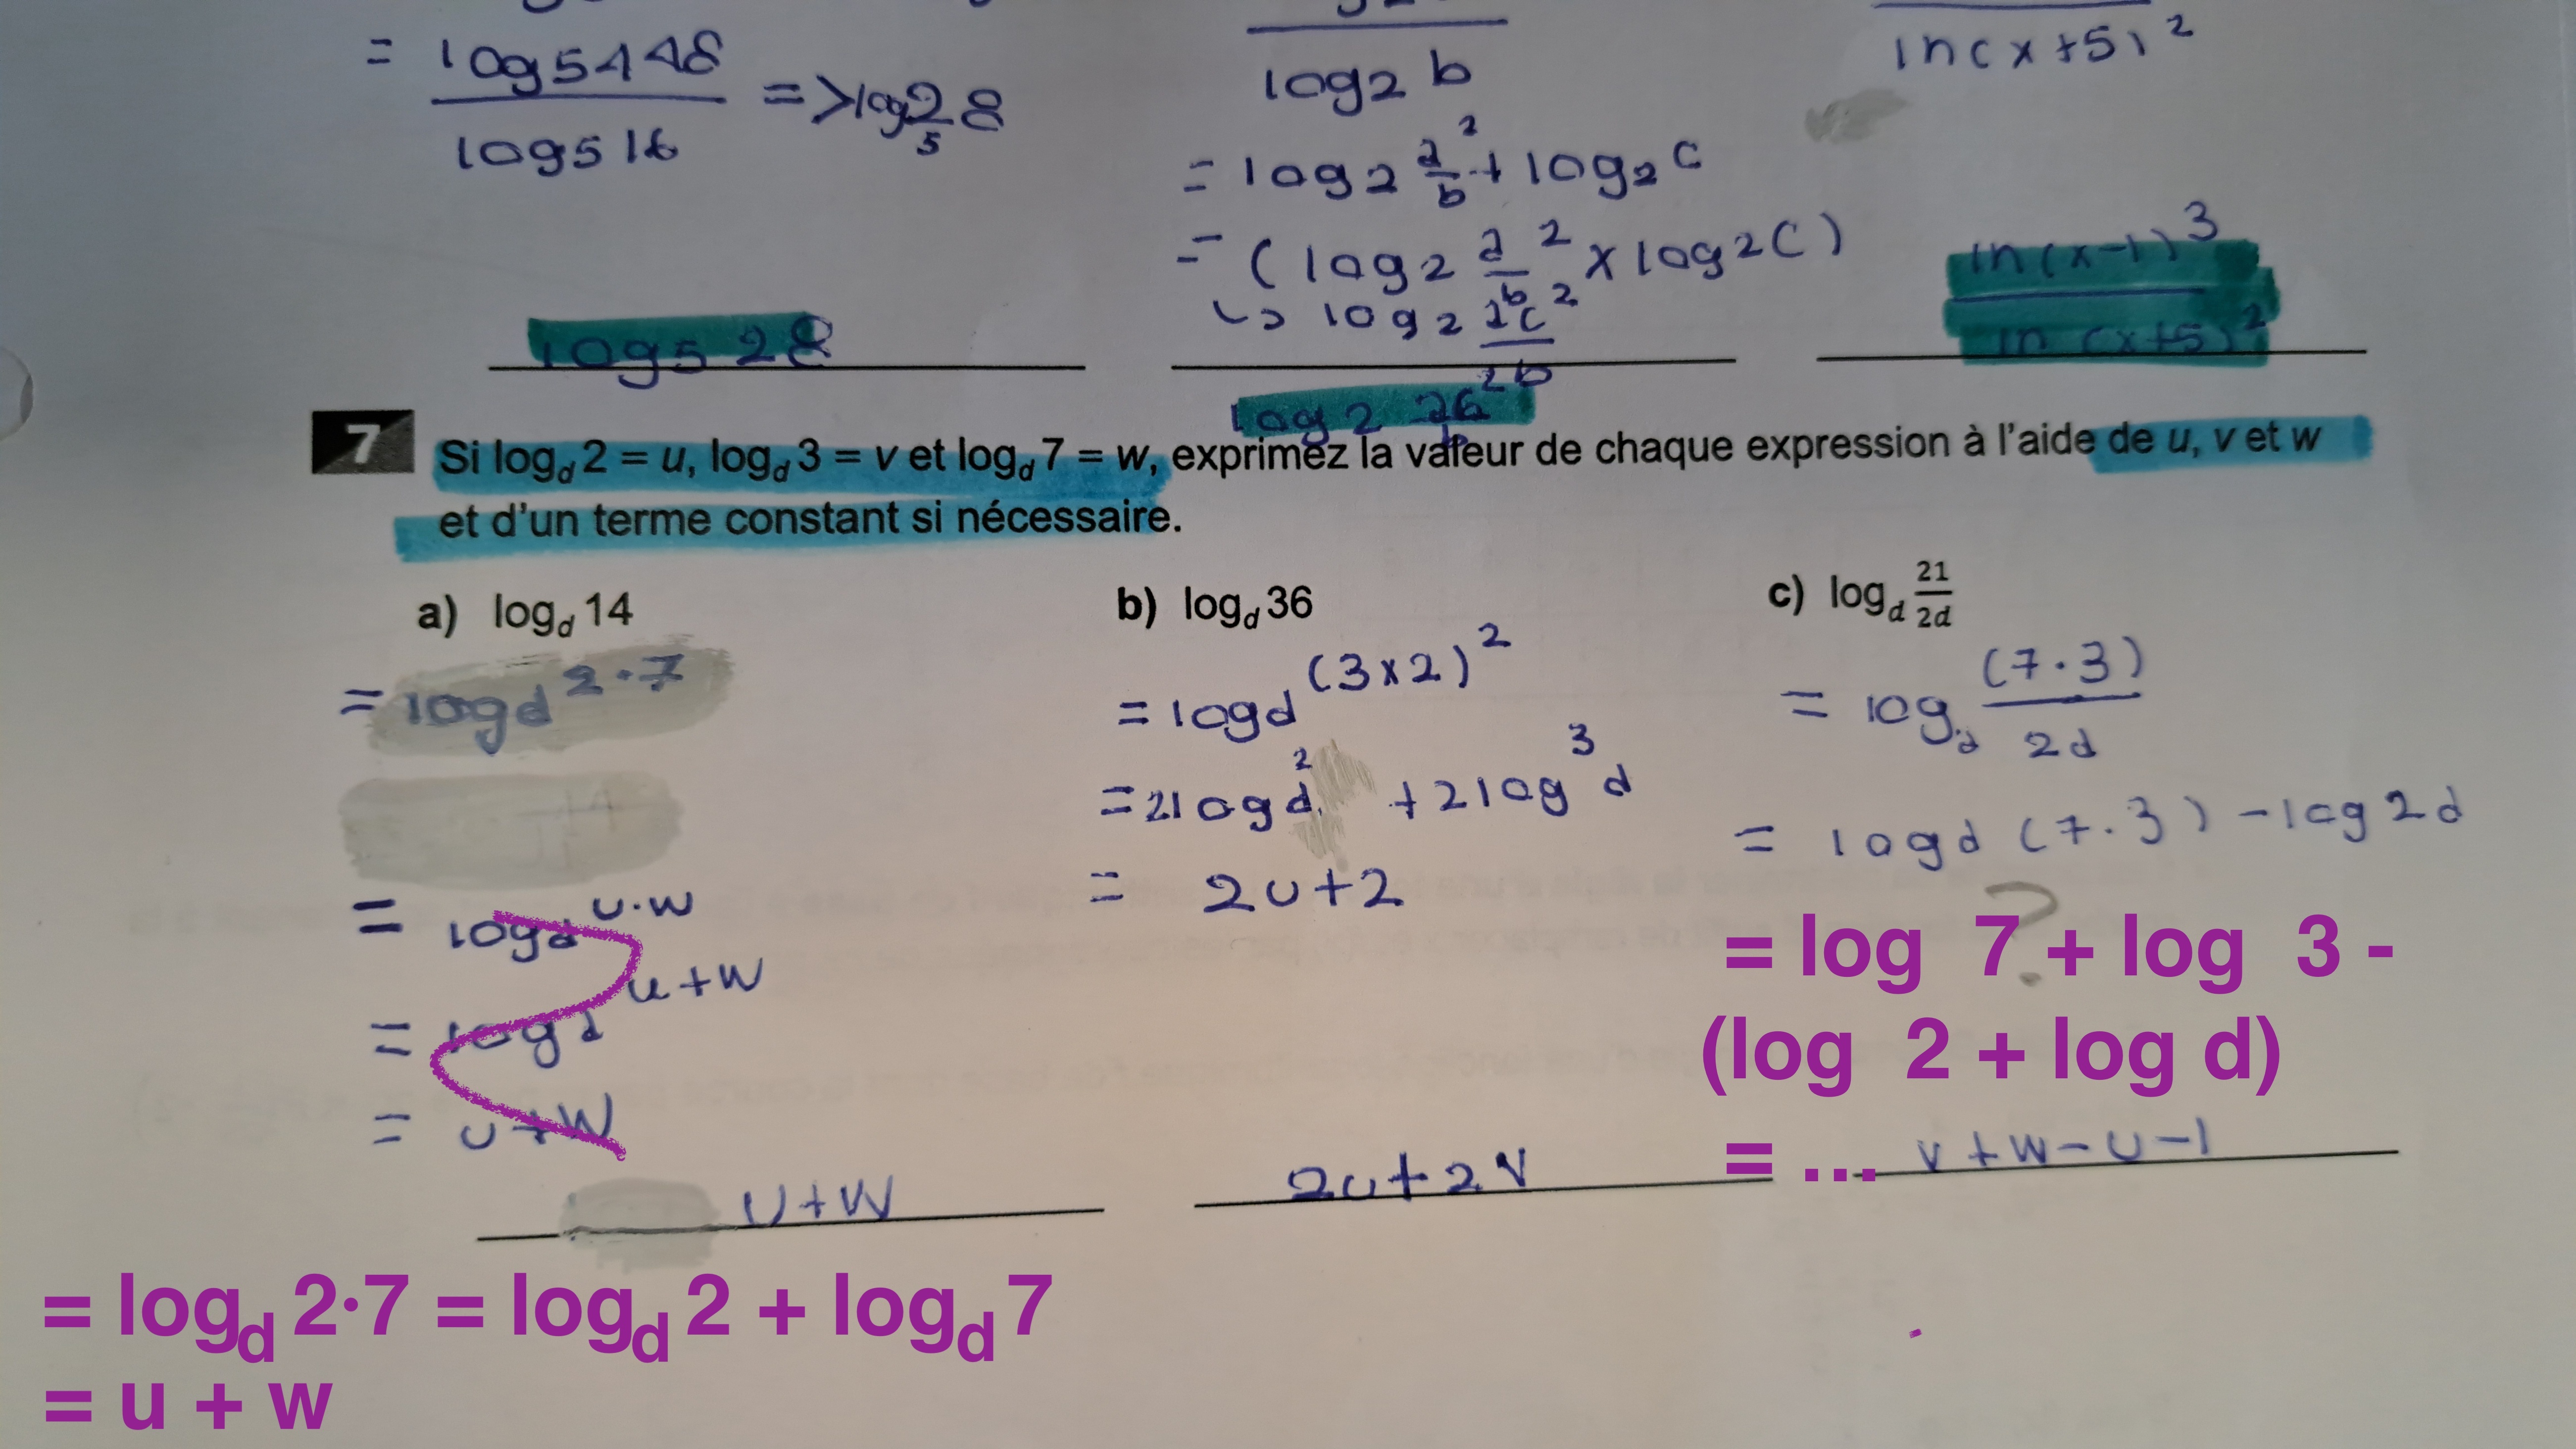 = log5 448 / log5 16 => log5 28
log5 28
log2 b
= log2 a/b² + log2 c
= (log2 a/b² x log2 C)
↳ log2
ln(x+5)²
ln(x-1)³
ln(x+5)²
7 Si log_d 2 = u, log_d 3 = v et log_d 7 = w, exprimez la valeur de chaque expression à l'aide de u, v et w
et d'un terme constant si nécessaire.
a) log_d 14
= logd 2·7
= logd u·w
= logd u+w
= u+w
u+w
= log_d 2·7 = log_d 2 + log_d 7
= u + w
b) log_d 36
= logd (3x2)²
= 2logd² + 2log³d
= 2u+2
2u+2v
c) log_d 21/2d
= log_d (7·3)/2d
= logd (7·3) - log2d
?
= log 7 + log 3 -
(log 2 + log d)
= ... v+w-u-1